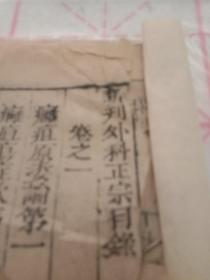 新刊外科正宗目錄
卷之一
癰疽原委論第一
癰疽